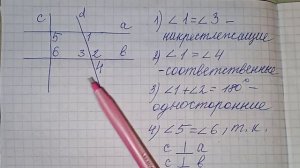 c d a
5 1
6 3 2 в
4
1) ∠1 = ∠3 –
накрестлежащие
2) ∠1 = ∠4
- соответственные
3) ∠1 + ∠2 = 180° -
односторонние
4) ∠5 = ∠6, т.к.
c ⊥ a
c ⊥ в